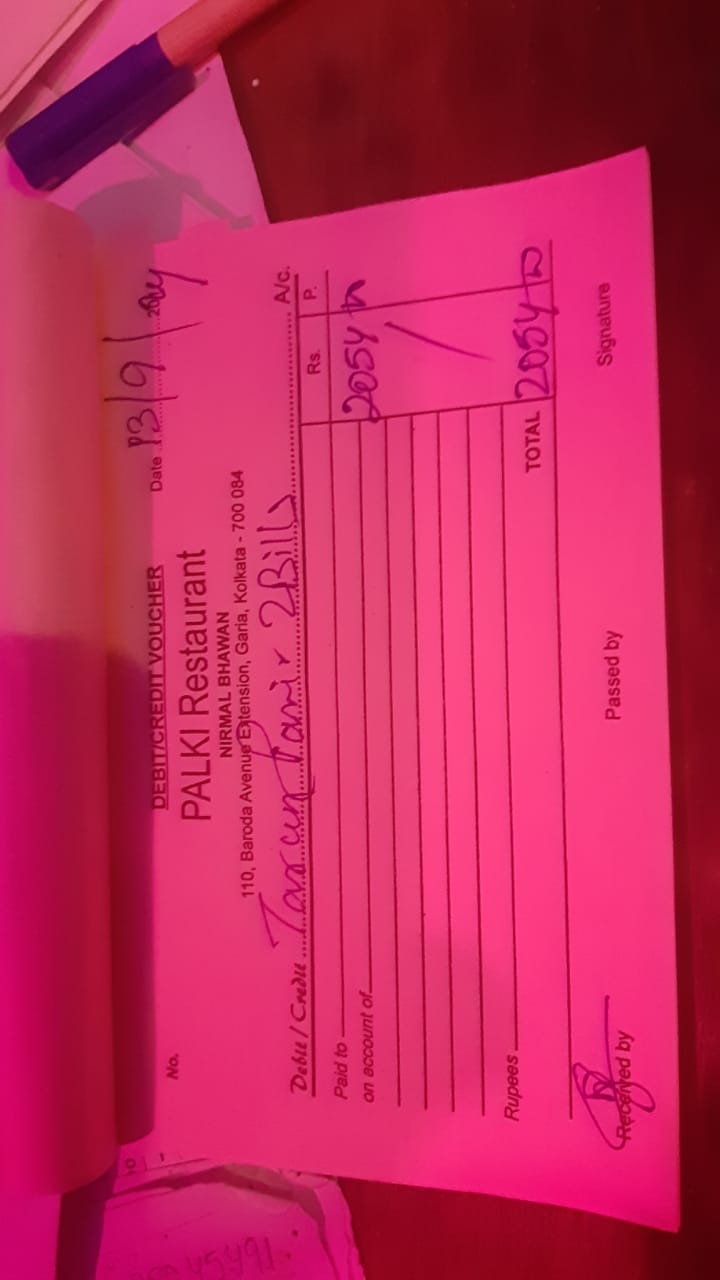 DEBIT/CREDIT VOUCHER
No.
Date 13/9/2024
PALKI Restaurant
NIRMAL BHAWAN
110, Baroda Avenue Extension, Garia, Kolkata - 700 084
Debit / Credit Tarun Panir 2 Bills A/c.
Rs. P.
Paid to 2054
on account of
Rupees
TOTAL 2054
Received by
Passed by
Signature